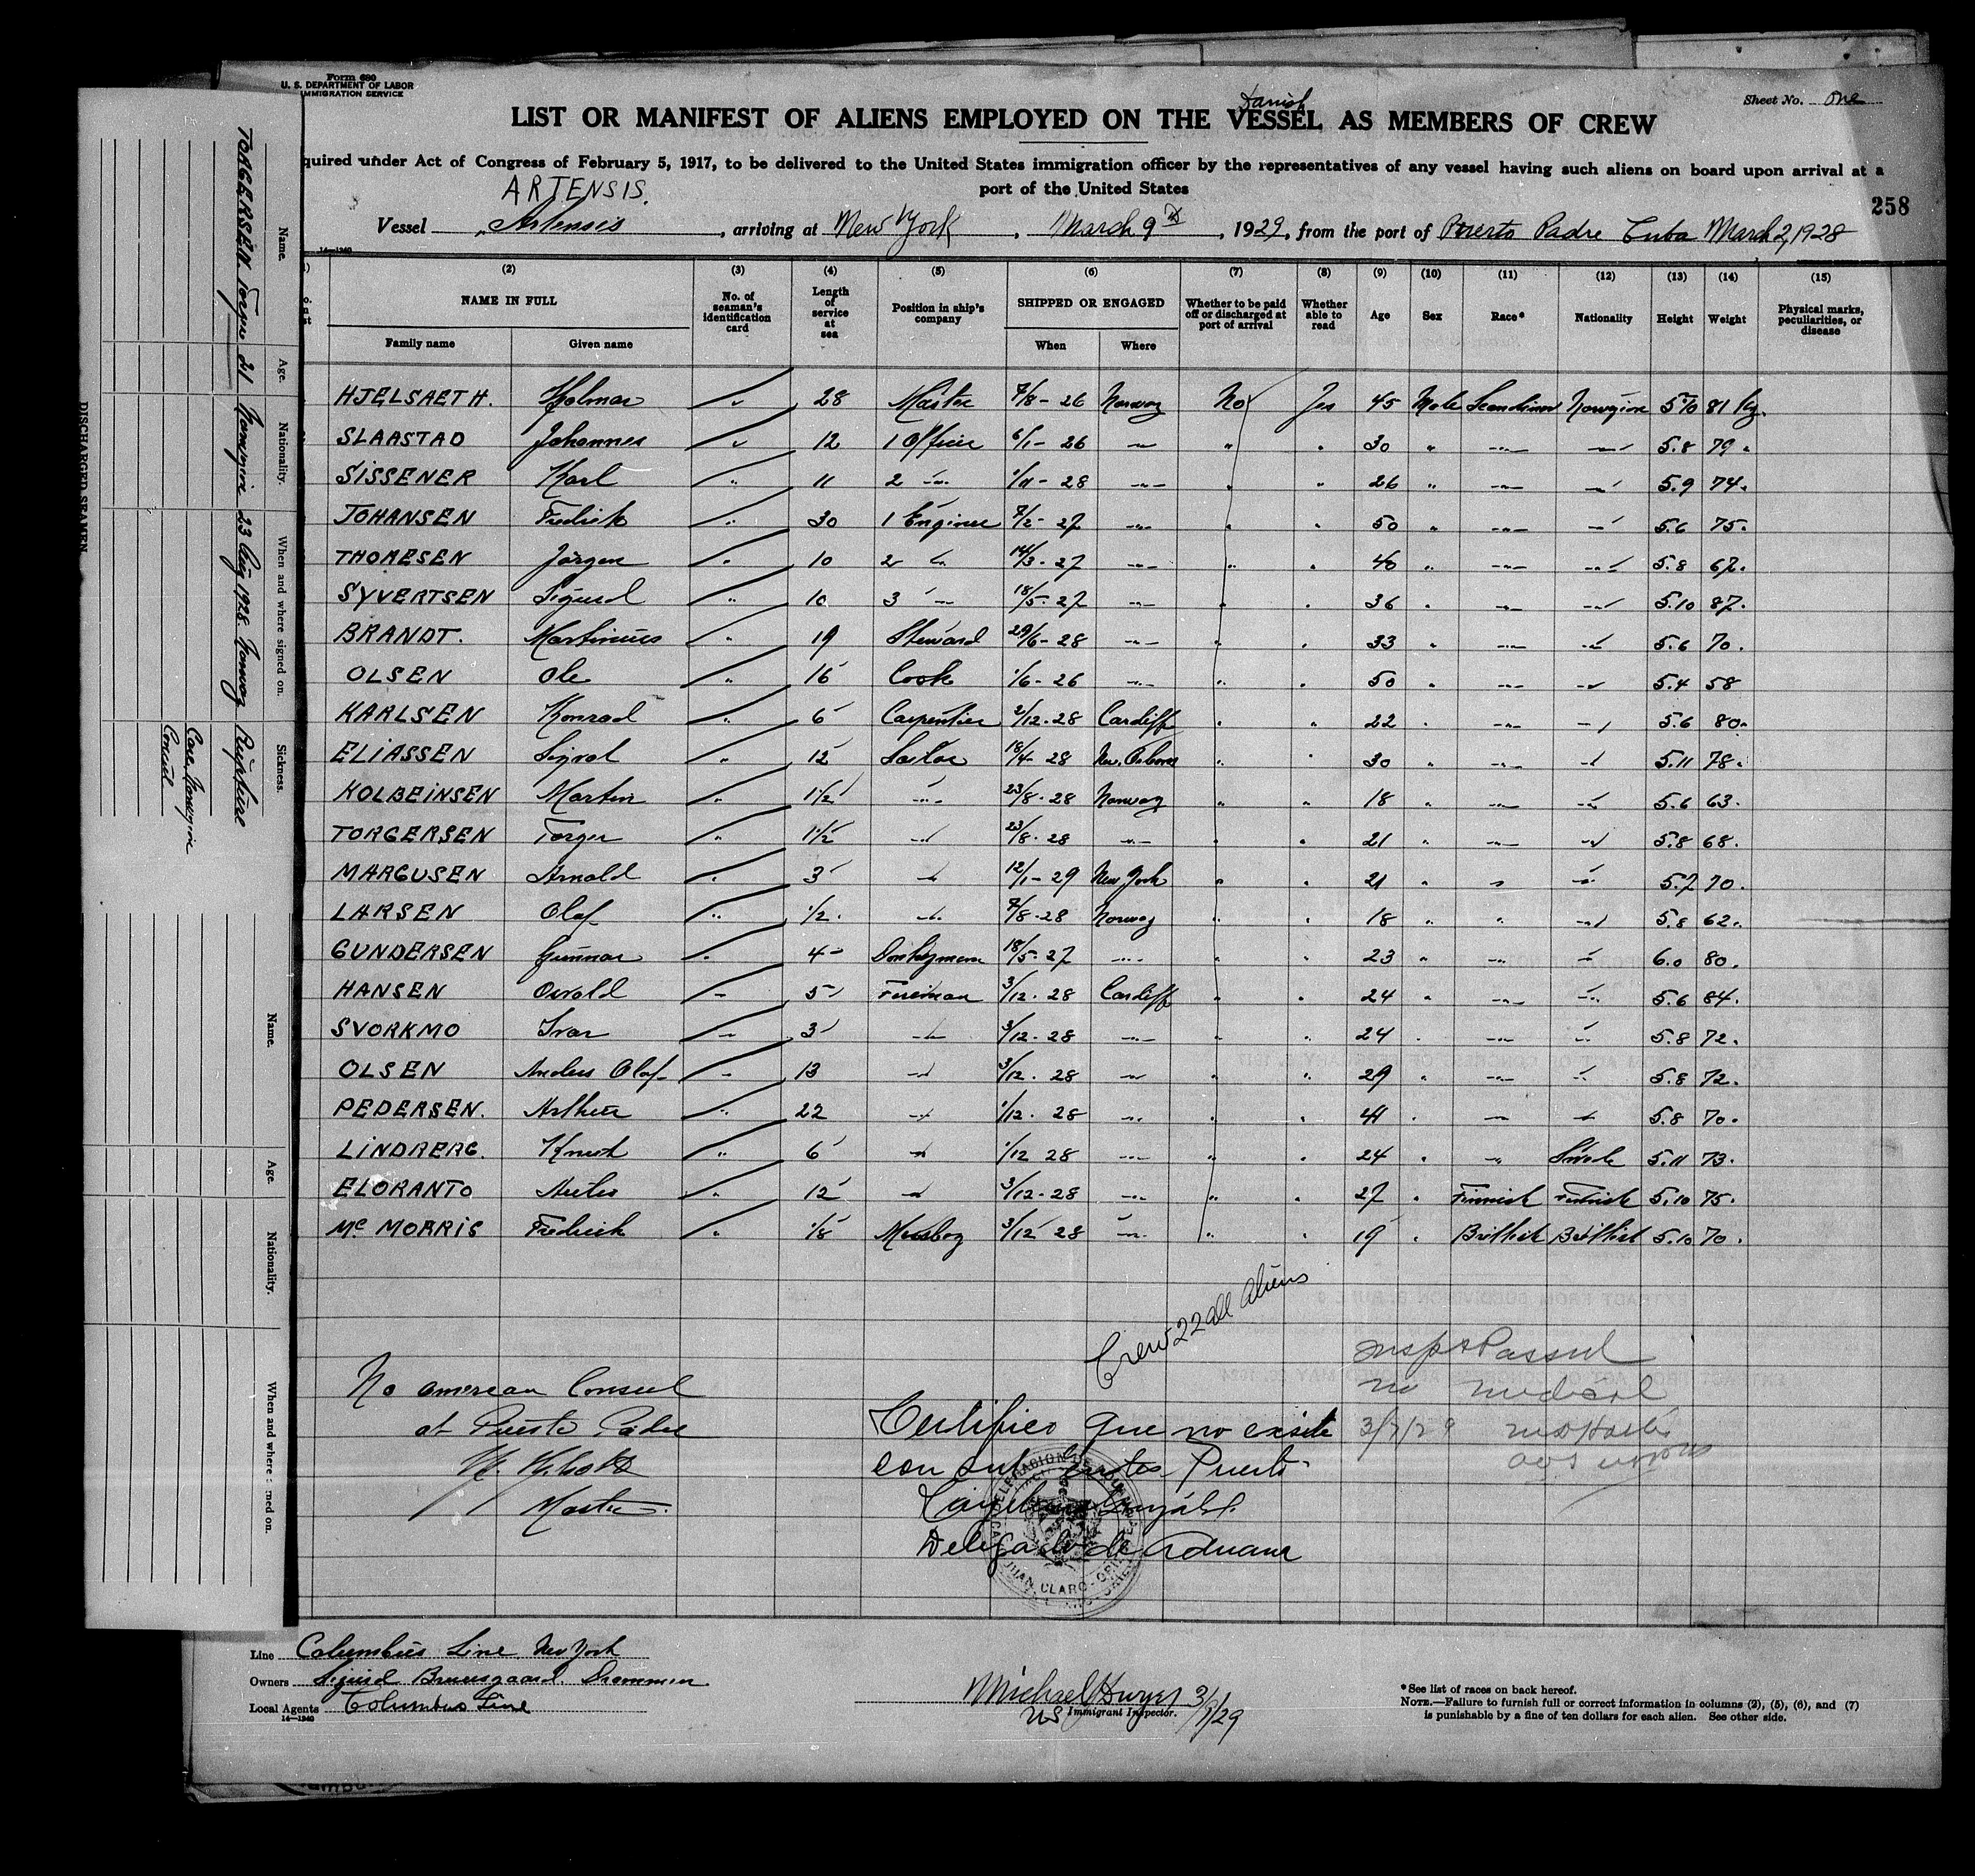 Form 680
U. S. DEPARTMENT OF LABOR
IMMIGRATION SERVICE
Sheet No. One
Danish
LIST OR MANIFEST OF ALIENS EMPLOYED ON THE VESSEL AS MEMBERS OF CREW
quired under Act of Congress of February 5, 1917, to be delivered to the United States immigration officer by the representatives of any vessel having such aliens on board upon arrival at a
port of the United States
ARTENSIS.
258
Vessel Artensis, arriving at New York, March 9th, 1929, from the port of Puerto Padre Cuba March 2, 1928
14—1240
(2) (3) (4) (5) (6) (7) (8) (9) (10) (11) (12) (13) (14) (15)
NAME IN FULL
Family name Given name
No. of seaman's identification card
Length of service at sea
Position in ship's company
SHIPPED OR ENGAGED
When Where
Whether to be paid off or discharged at port of arrival
Whether able to read
Age Sex Race* Nationality Height Weight
Physical marks, peculiarities, or disease
HJELSAETH. Hjalmar " 28 Master 7/8-26 Norway No Yes 45 Male Scandinav Norwgian 5.10 81 kg.
SLAASTAD Johannes " 12 1 Officer 6/1-26 -"- " " 30 " -"- -"- 5.8 79 "
SISSENER Karl " 11 2 -"- 1/11-28 -"- " " 26 " -"- -"- 5.9 74.
JOHANSEN Fredrik " 30 1 Enginer 7/2-27 -"- " " 50 " -"- -"- 5.6 75.
THOMESEN Jörgen " 10 2 -"- 14/3-27 -"- " " 40 " -"- -"- 5.8 67.
SYVERTSEN Sigurd " 10 3 -"- 18/5-27 -"- " " 36 " -"- -"- 5.10 87.
BRANDT. Martinius " 19 Steward 29/6-28 -"- " " 33 " -"- -"- 5.6 70.
OLSEN Ole " 16 Cook 1/6-26 -"- " " 50 " -"- -"- 5.4 58
KARLSEN Konrad " 6 Carpentier 2/12-28 Cardiff " " 22 " -"- -"- 5.6 80.
ELIASSEN Sigval " 12 Sailor 18/4-28 New. Orleans " " 30 " -"- -"- 5.11 78.
KOLBEINSEN Martin " 1 1/2 -"- 23/8-28 Norway " " 18 " -"- -"- 5.6 63.
TORGERSEN Torger " 1 1/2 -"- 23/8-28 -"- " " 21 " -"- -"- 5.8 68.
MARGUSEN Arnold " 3 -"- 12/1-29 New York " " 21 " " -"- 5.7 70.
LARSEN Olaf " 1/2 -"- 7/8-28 Norway " " 18 " " -"- 5.8 62.
GUNDERSEN Gunnar " 4 Donkeyman 18/5-27 -"- " " 23 " -"- -"- 6.0 80.
HANSEN Osvald " 5 Fireman 3/12-28 Cardiff " " 24 " -"- -"- 5.6 84.
SVORKMO Ivar " 3 -"- 3/12-28 -"- " " 24 " -"- -"- 5.8 72.
OLSEN Anders Olaf " 13 -"- 3/12-28 -"- " " 29 " -"- -"- 5.8 72.
PEDERSEN. Arthur " 22 -"- 1/12-28 -"- " " 41 " -"- -"- 5.8 70.
LINDBERG. Knut " 6 -"- 1/12 28 -"- " " 24 " -"- Swede 5.11 73.
ELORANTO " 12 -"- 3/12-28 -"- " " 27 " Finnish Finnish 5.10 75.
Mc MORRIS Fredrick " Messboy 3/12 28 -"- " " 19 " British British 5.10 70.
Crew 22 all aliens
Insp & Passed
no medical
3/9/29
No american Consul
at Puerto Padre
Master.
Certifico que no existe
consul en este Puerto
Delegado de Aduana
DELEGACION DE ADUANA
JUAN CLARO
Line Columbus Line New York
Owners Sigurd Bruusgaard Drammen
Local Agents Columbus Line
14—1240
Michael Dwyer 3/9/29
US Immigrant Inspector.
*See list of races on back hereof.
NOTE.—Failure to furnish full or correct information in columns (2), (5), (6), and (7)
is punishable by a fine of ten dollars for each alien. See other side.
DISCHARGED SEAMEN
Name. Age. Nationality. When and where signed on. Sickness.
TORGERSEN Torger 21 Norwegian 23 Aug 1928 Norway Rupture
Care Norwegian
Consul
Name. Age. Nationality. When and where signed on.